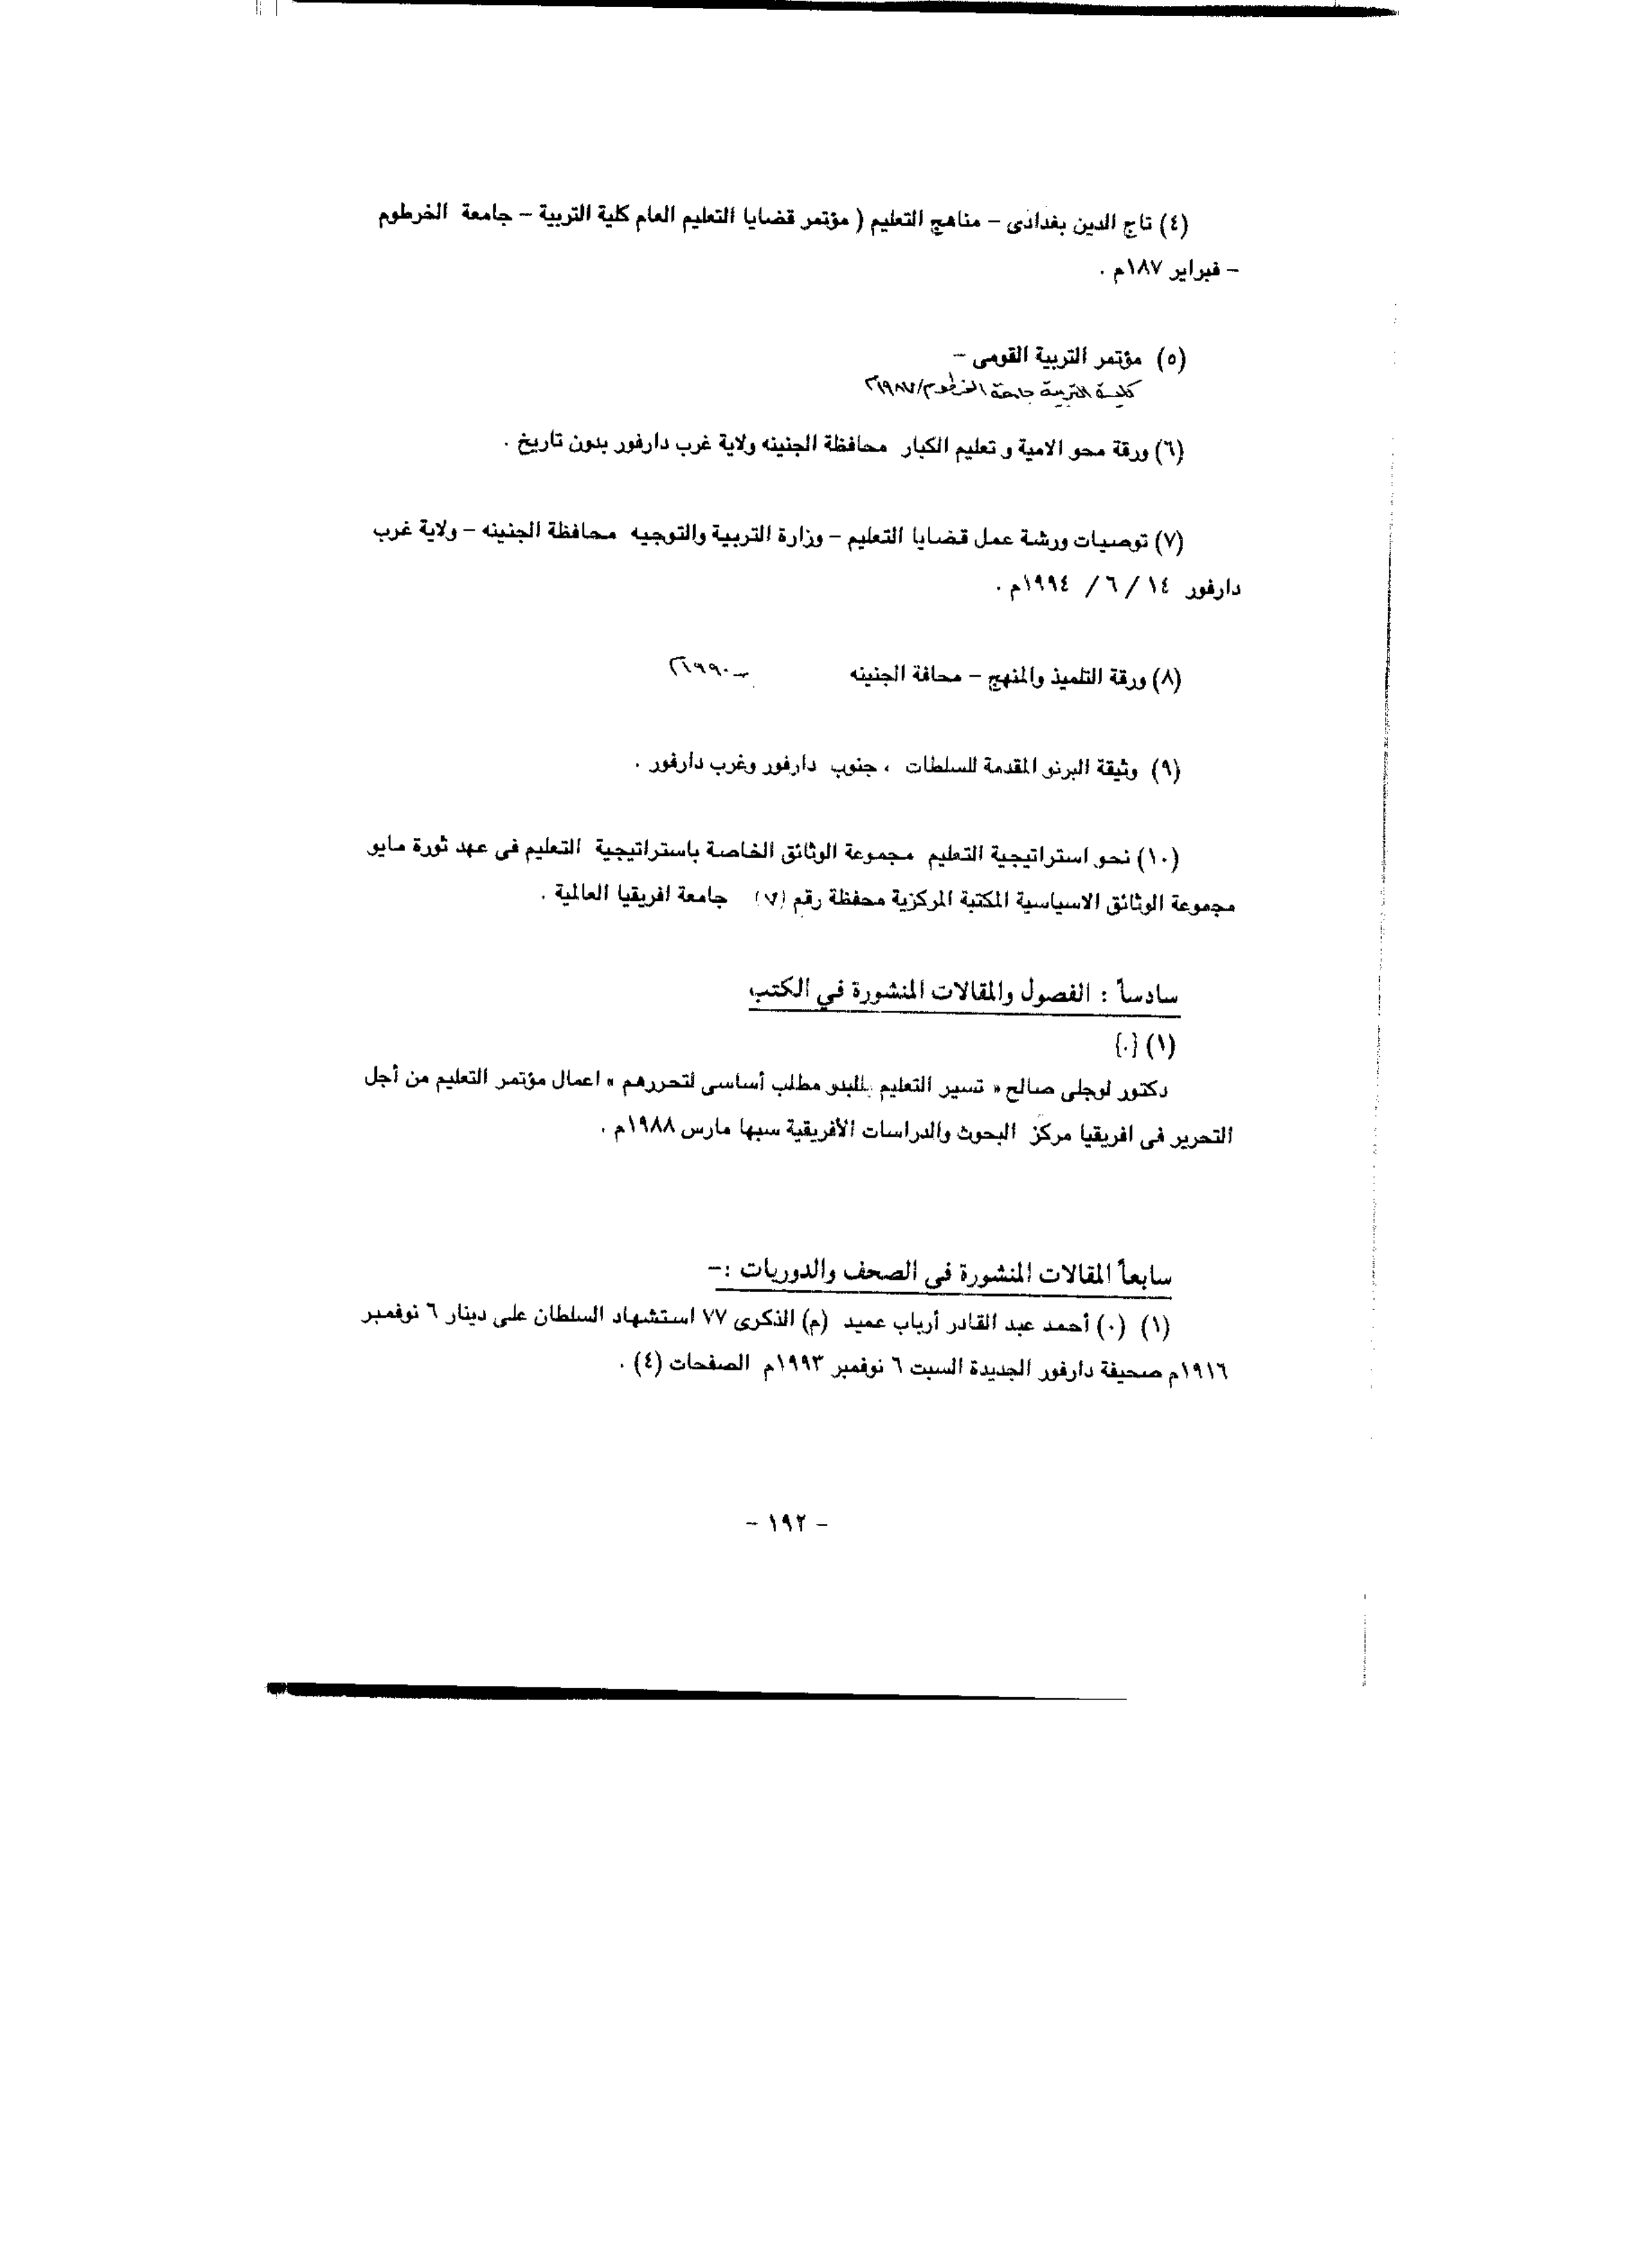 (٤) تاج الدين بغدادى – مناهج التعليم ( مؤتمر قضايا التعليم العام كلية التربية – جامعة الخرطوم
– فبراير ١٨٧م .
(٥) مؤتمر التربية القومى –
كلية التربية جامعة الخرطوم/١٩٨٧م
(٦) ورقة محو الامية و تعليم الكبار محافظة الجنينه ولاية غرب دارفور بدون تاريخ .
(٧) توصيات ورشة عمل قضايا التعليم – وزارة التربية والتوجيه محافظة الجنينه – ولاية غرب
دارفور ١٤ / ٦ / ١٩٩٤م .
(٨) ورقة التلميذ والمنهج – محافة الجنينه – ١٩٩٠م
(٩) وثيقة البرنو المقدمة للسلطات ، جنوب دارفور وغرب دارفور .
(١٠) نحو استراتيجية التعليم مجموعة الوثائق الخاصة باستراتيجية التعليم فى عهد ثورة مايو
مجموعة الوثائق الاسياسية المكتبة المركزية محفظة رقم (٧) جامعة افريقيا العالمية .
سادساً : الفصول والمقالات المنشورة في الكتب
(١) {.}
دكتور لوجلى صالح « تسير التعليم للبدو مطلب أساسى لتحررهم » اعمال مؤتمر التعليم من أجل
التحرير فى افريقيا مركز البحوث والدراسات الأفريقية سبها مارس ١٩٨٨م .
سابعاً المقالات المنشورة فى الصحف والدوريات :–
(١) (٠) أحمد عبد القادر أرباب عميد (م) الذكرى ٧٧ استشهاد السلطان على دينار ٦ نوفمبر
١٩١٦م صحيفة دارفور الجديدة السبت ٦ نوفمبر ١٩٩٣م الصفحات (٤) .
– ١٩٢ –